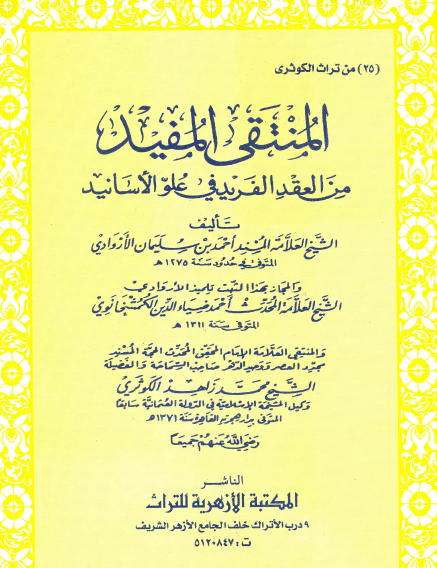 (٢٥) من تراث الكوثرى
المُنْتَقى المُفيد
مِنَ العِقْدِ الفَريد في عُلوّ الأَسَانيد
تأليف
الشيخ العلّامة المُسنِد أحمد بن سليمان الأرْوَادي
المتوفى في حدود سنة ١٢٧٥ هـ
والمجاز بهذا الثبت تلميذ الأروادي
الشيخ العلّامة المُحَدّث أحمد ضياء الدين الكمشخانوي
المتوفى سنة ١٣١١ هـ
والمنتقي العلّامة الإمام المحقق المُحَدّث الحجّة المُسْنِد
مجدّد العصر ووحيد الدهر صاحب السماحة والفضيلة
الشيخ محمد زاهد الكوثري
وكيل المشيخة الإسلامية في الدولة العثمانية سابقا
المتوفى القاهرة سنة ١٣٧١ هـ
رضي الله عنهم جميعا
الناشر
المكتبة الأزهرية للتراث
٩ درب الأتراك خلف الجامع الأزهر الشريف
ت : ٥١٢٠٨٤٧